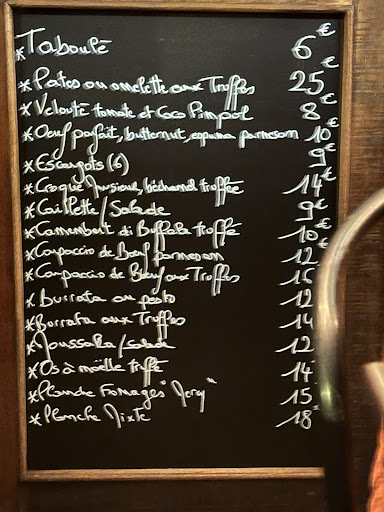 *Taboulé 6€
*Pates ou omelette aux Truffes 25€
*Velouté tomate et Coco Pimpol 8€
*Oeuf parfait, butternut, espuma parmesan 10€
*Escargots (6) 9€
*Croque Monsieur, béchamel truffée 14€
*Caillette/Salade 9€
*Camembert di Buffala truffé 10€
*Carpaccio de Bœuf parmesan 12
*Carpaccio de Bœuf aux Truffes 16
*Burrata au pesto 12
*Burrata aux Truffes 14
*Moussaka/Salade 12
*Os à moëlle truffé 14
*Planche Fromages " " 15
*Planche Mixte 18